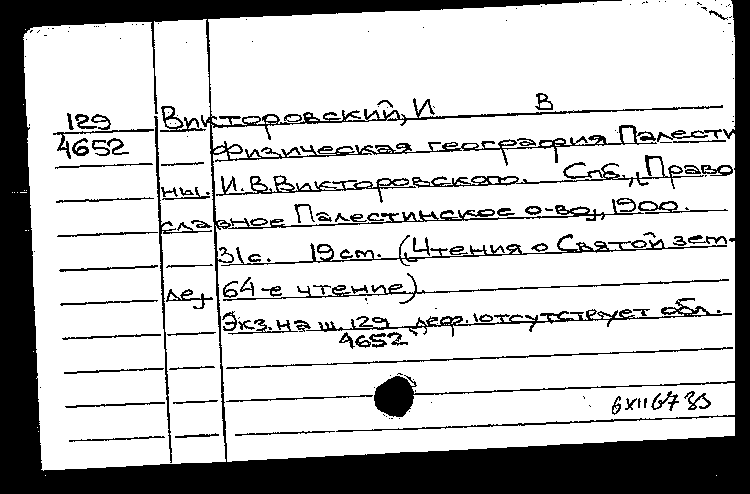 129 Викторовский, И В
4652 Физическая география Палести
ны. И.В.Викторовского. Спб., [Право
славное Палестинское о-во], 1900.
31с. 19 cm. ([Чтения о Святой зем-
ле]. 64-е чтение).
Экз. на ш. 129 деф. отсутствует обл.
4652